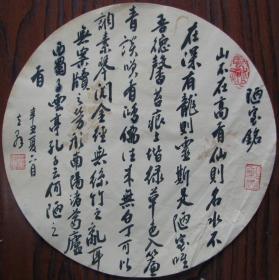 陋室銘
山不在高有仙則名水不
在深有龍則靈斯是陋室唯
吾德馨苔痕上階綠草色入簾
青談笑有鴻儒往來無白丁可以
調素琴閱金經無絲竹之亂耳
無案牘之勞形南陽諸葛廬
西蜀子雲亭孔子云何陋之
有
辛丑夏六月